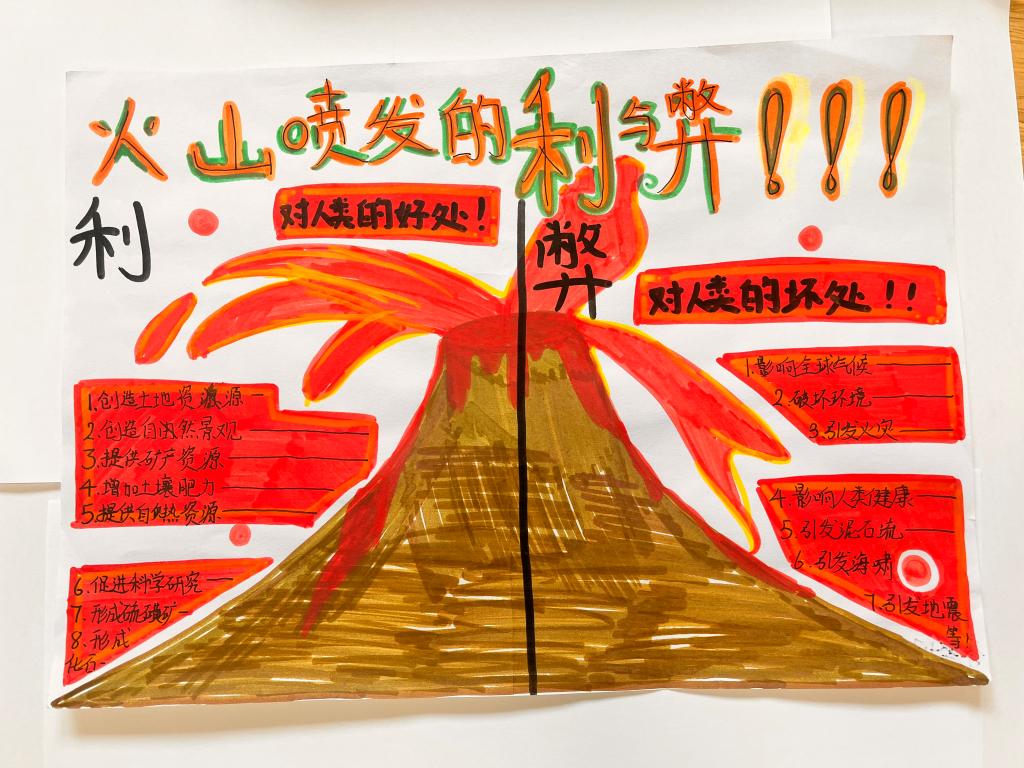 火山喷发的利与弊！！！
利
对人类的好处！
1.创造土地资源
2.创造自然景观
3.提供矿产资源
4.增加土壤肥力
5.提供自然热资源
6.促进科学研究
7.形成硫磺矿
8.形成
化石
弊
对人类的坏处！！
1.影响全球气候
2.破坏环境
3.引发火灾
4.影响人类健康
5.引发泥石流
6.引发海啸
7.引发地震
等